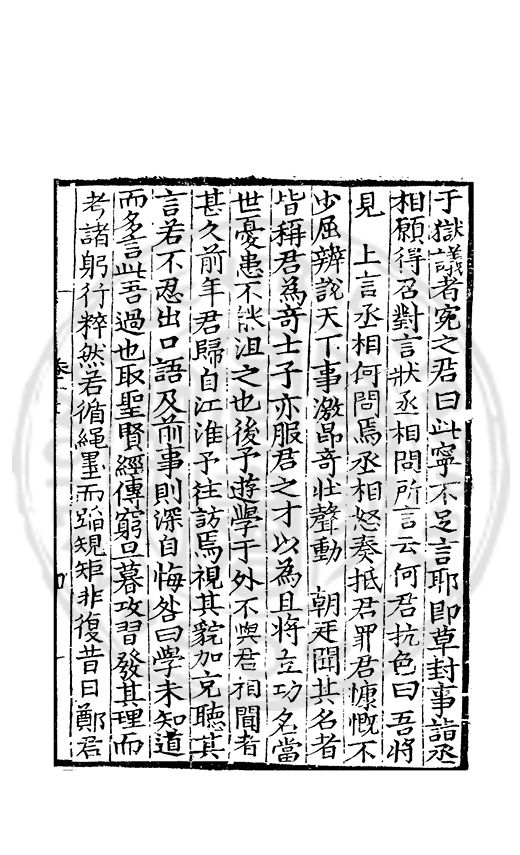 于獄議者寃之君曰此寧不足言耶即草封事詣丞
相願得召對言狀丞相問所言云何君抗色曰吾將
見　上言丞相何問焉丞相怒奏抵君罪君慷慨不
少屈辨說天下事激昂奇壯聲動　朝廷聞其名者
皆稱君為奇士子亦服君之才以為且將立功名當
世憂患不能沮之也後予遊學于外不與君相聞者
甚久前年君歸自江淮予往訪焉視其貌加充聽其
言若不忍出口語及前事則深自悔咎曰學未知道
而多言此吾過也取聖賢經傳窮旦暮攻習發其理而
考諸躬行粹然若循繩墨而蹈規矩非復昔日鄭君